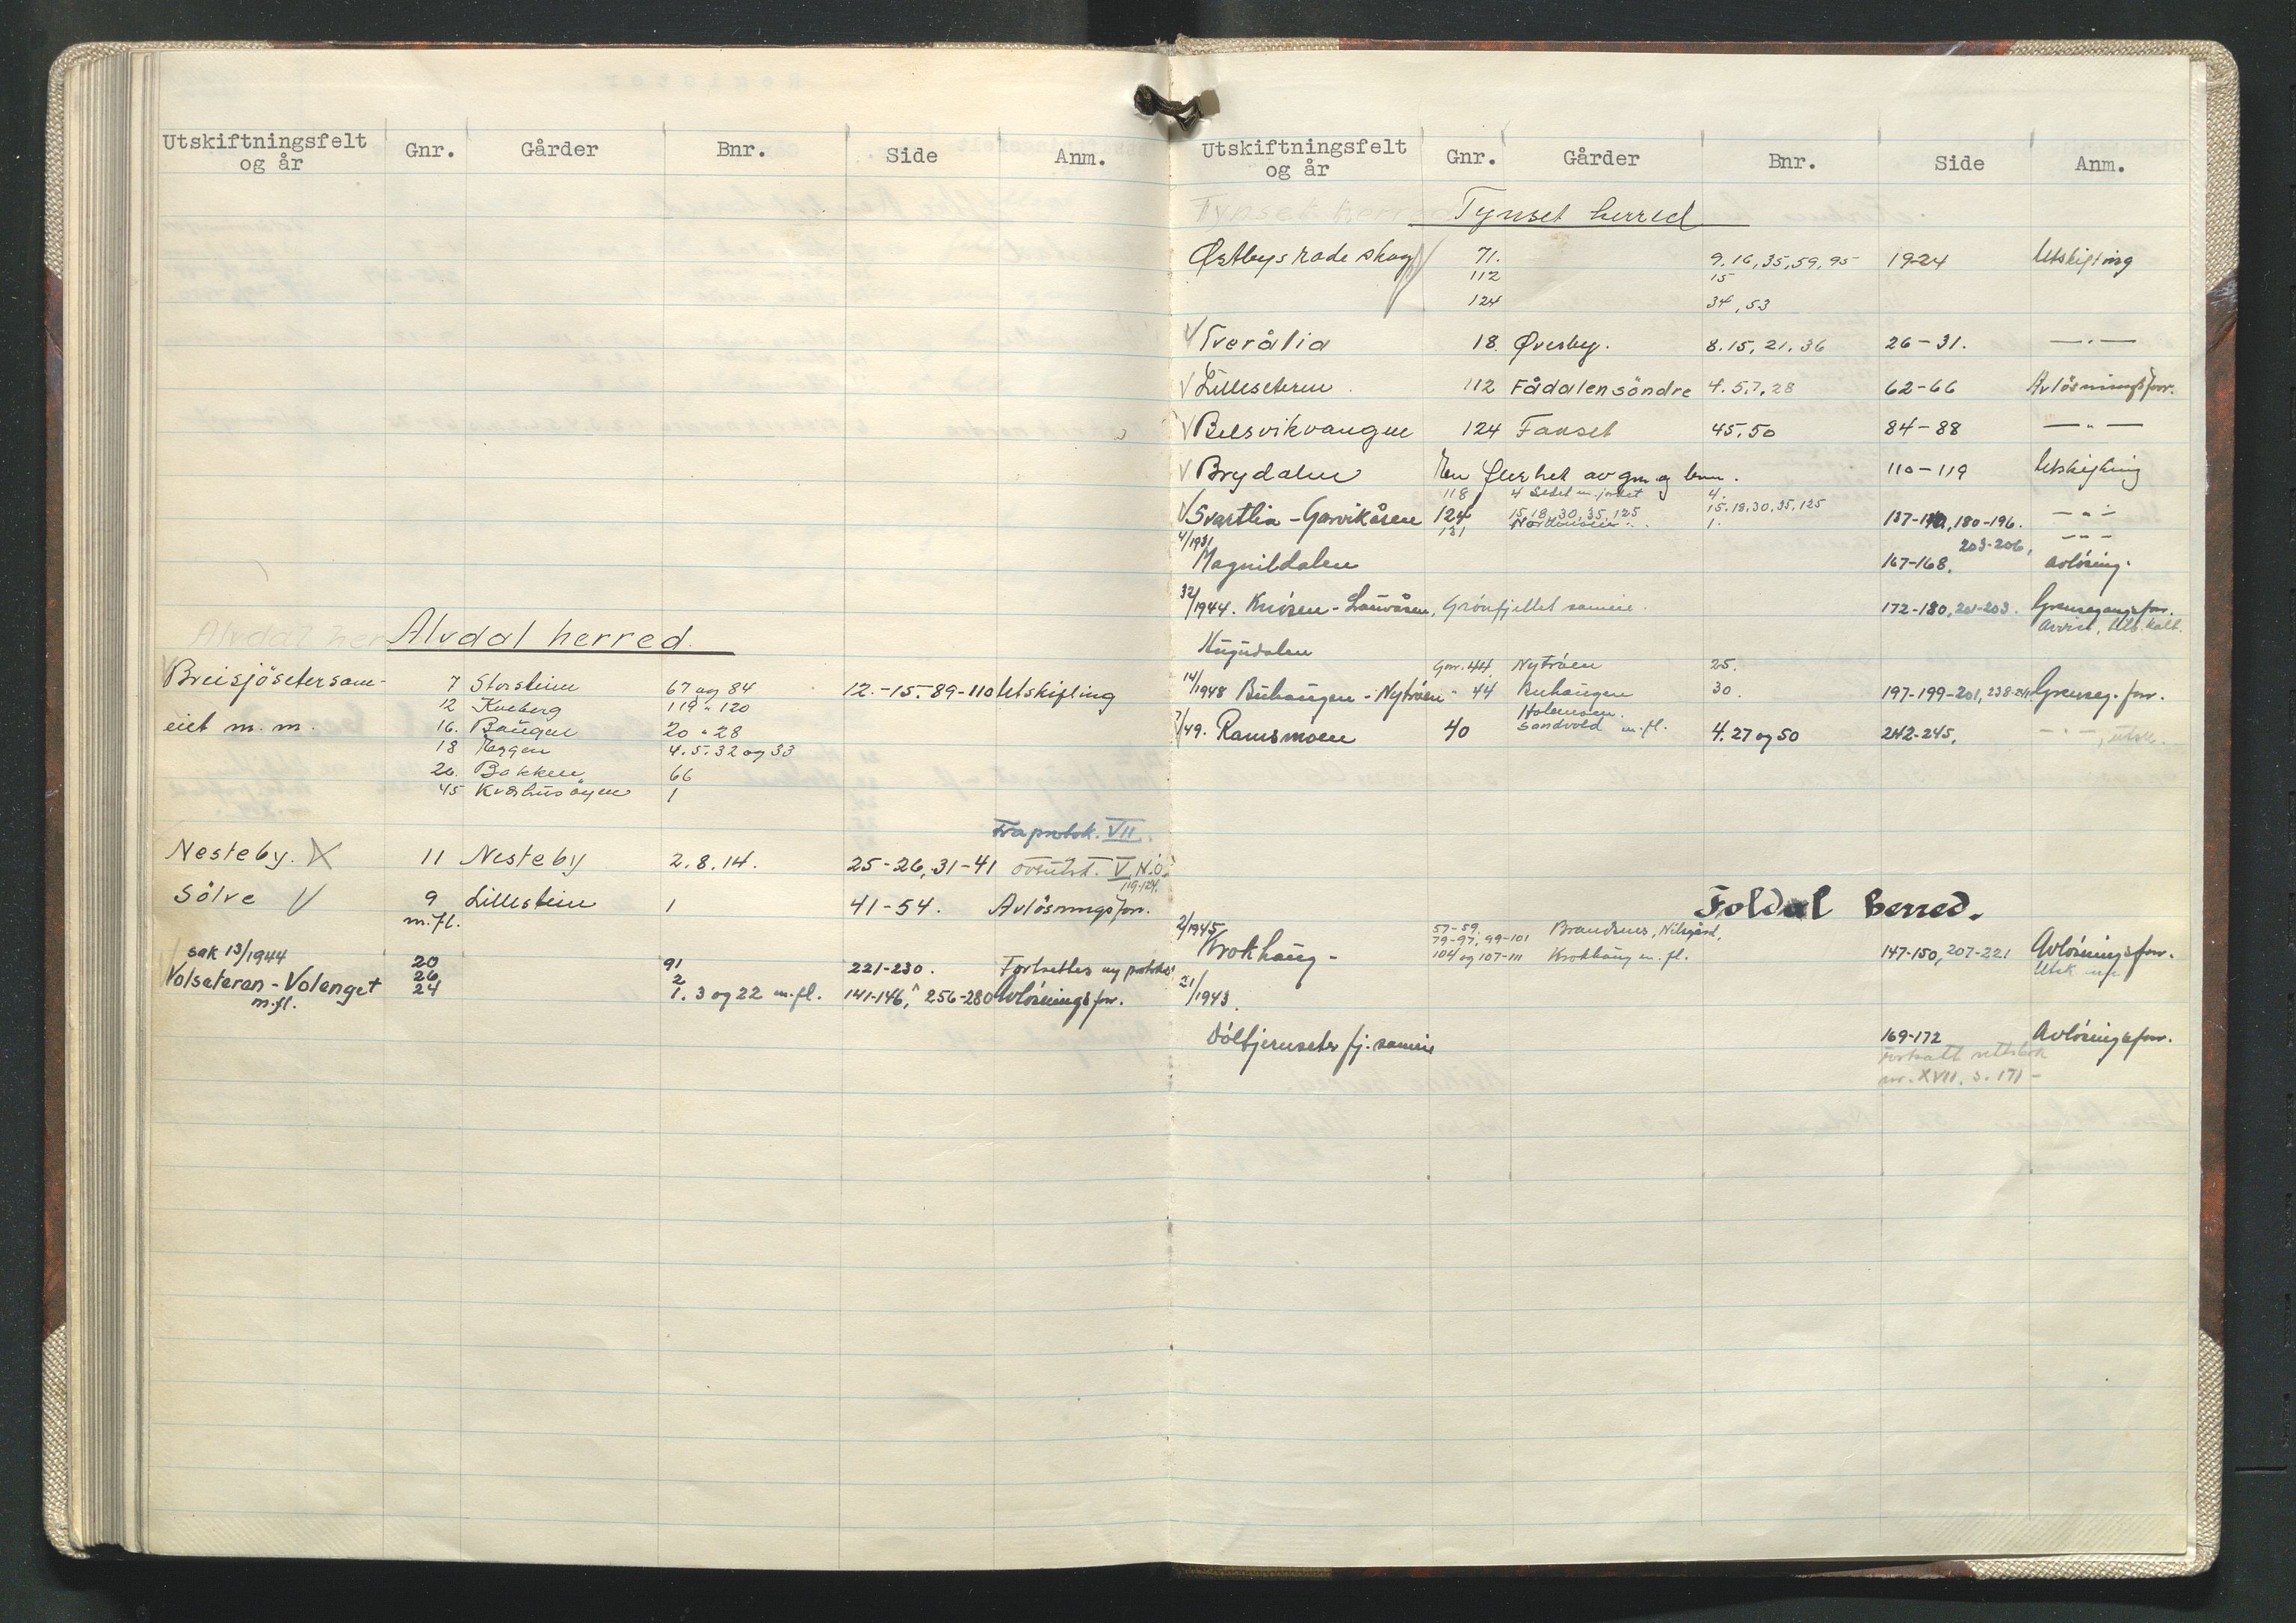 Utskiftningsfelt og år Gnr. Gårder Bnr. Side Anm.
Alvdal herred.
Breisjösetersam- 7 Storsteim 67 og 84 12.-15. 89-110 Utskifting
12 Kveberg 119 " 120
eiet m. m. 16. Baugen 20 " 28
18 Eggen 4. 5. 32 og 33
26. Bakken 66
45 Kværhusöyen 1
Fra protok. VII.
Nesteby. 11 Nesteby 2. 8. 14. 25-26, 31-41 V. N.Ö.
119-124.
Sölve V 9 Lillesteim 1 41-54. Avlösningsforr.
m.fl.
sak 13/1944 20 91 221-230. Fortsettes ny protokol
Volseteran-Volenget 26 2
24 1. 3 og 22 m.fl. 141-146, 256-280 Avlösningsforr.
m.fl.
Utskiftningsfelt og år Gnr. Gårder Bnr. Side Anm.
Tynset herred
Østbys rode skog 71. 9, 16, 35, 59, 95 19-24 Utskifting
112 15
124 34, 53
V Tverålia 18 Øvesby. 8. 15, 21. 36 26-31. —"—
V Lilleseteren 112 Fådalen söndre 4. 5. 7. 28 62-66 Avlösningsforr.
V Belsvikvangen 124 Fanset 45. 50 84-88 —"—
V Brydalen En flerhet av gnr. og bnr. 110-119 Utskifting
118 4 4.
V Svartlia-Garvikåsen 124 15, 18, 30, 35, 125 15, 18, 30, 35, 125 137-141, 180-196. —"—
131 1.
4/1931 203-206, —"—
Magnildalen 167-168. avlösing.
32/1944. Knösen-Lauvåsen, Grönfjellet sameie. 172-180, 201-203. Grensegangsforr.
Avvist,
Hugudalen
Gnr. 44. Nytröen 25.
14/1948 Buhaugen-Nytröen 44 Buhaugen 30. 197-199-201, 238-241 Grenseg. forr.
Holmsen.
7/49. Ramsmoen 40 Sandvold m.fl. 4. 27 og 50 242-245, —"—, utsk.
Foldal herred.
2/1945 57-59. Brandsnes, Nilsgård,
Krokhaug- 79-97, 99-101
104 og 107-111 Krokhaug m. fl. 147-150, 207-221 Avlösningsforr.
21/1943
Dölbjørnseter fj. sameie 169-172 Avlösingsforr.
Fortsatt rettsbok
nr. XVII. s. 171-